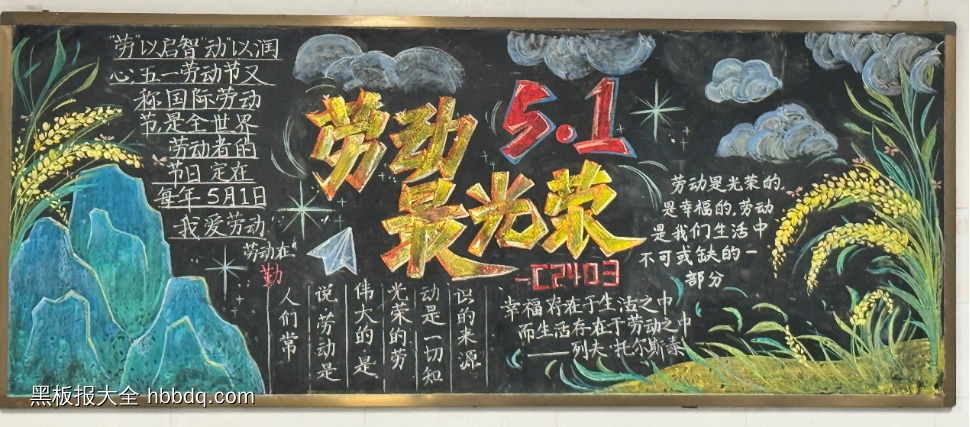 "劳"以启智"动"以润
心五一劳动节又
称国际劳动
节,是全世界
劳动者的
节日定在
每年5月1日
我爱劳动
劳动在
勤
劳动
最光荣
5.1
C2403
劳动是光荣的,
是幸福的,劳动
是我们生活中
不可或缺的一
部分
人们常
说,劳动是
伟大的是
光荣的劳
动是一切知
识的来源
幸福存在于生活之中
而生活存在于劳动之中
——列夫·托尔斯泰
黑板报大全 hbbdq.com